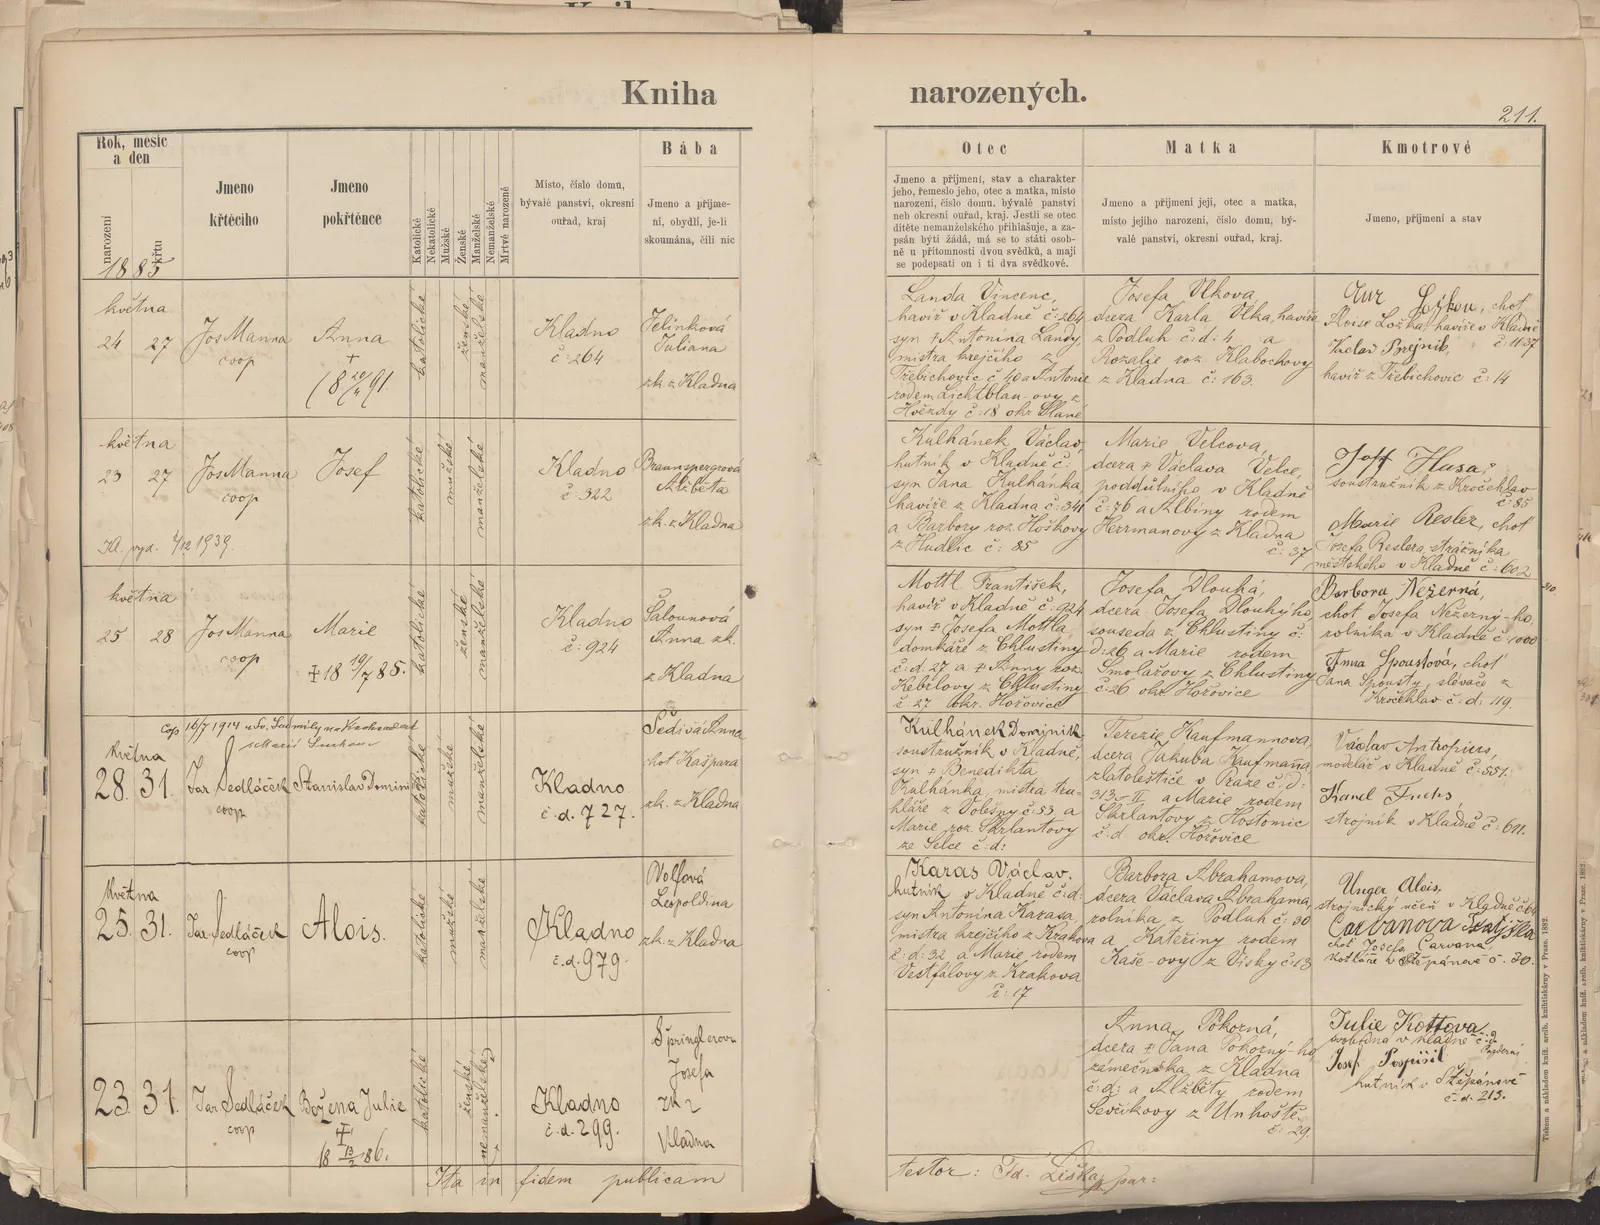 Kniha narozených.
211.
Rok, měsíc a den
narození
křtu
1885
Jmeno křtěcího
Jmeno pokřtěnce
Katolické
Nekatolické
Mužské
Ženské
Manželské
Nemanželské
Mrtvě narozené
Místo, číslo domu, bývalé panství, okresní ouřad, kraj
Bába
Jmeno a příjmení, obydlí, je-li skoumána, čili nic
Otec
Jmeno a příjmení, stav a charakter
jeho, řemeslo jeho, otec a matka, místo
narození, číslo domu, bývalé panství
neb okresní ouřad, kraj. Jestli se otec
dítěte nemanželského přihlašuje, a za-
psán býti žádá, má se to státi osob-
ně u přítomnosti dvou svědků, a mají
se podepsati on i ti dva svědkové.
Matka
Jmeno a příjmení její, otec a matka,
místo jejího narození, číslo domu, bý-
valé panství, okresní ouřad, kraj.
Kmotrové
Jmeno, příjmení a stav
května
24 27
Jos Manna
coop
Anna
+
katolické
ženské
manželské
Kladno
č: 264
Jelínková
Juliana
zk. z Kladna
Landa Vincenc,
havíř v Kladně č: 264
syn + Antonína Landy,
mistra krejčího z
Třebichovic č 40 a Antonie
rodem Lichtblau-ovy z
Hvězdy č: 18 okr Slané
Josefa Vlkova,
dcera Karla Vlka, havíře
z Podluh č: d: 4 a
Rozalie roz. Klabochovy
z Kladna č: 163.
Ložkou, choť
Aloise Ložka, havíře v Kladně
č: 1137
Václav Brejník,
havíř z Třebichovic č: 14
května
23 27
Jos Manna
coop
Josef
vyd. 2/12 1939.
katolické
mužské
manželské
Kladno
č: 322
Braunspergrová
Alžběta
zk. z Kladna
Kulhánek Václav,
hutník v Kladně č:
syn Jana Kulhánka
havíře z Kladna č: 341
a Barbory roz. Hoškovy
z Hudlic č: 85
Marie Velcova,
dcera + Václava Velce,
poddůlního v Kladně
č: 76 a Albiny rodem
Herrmanovy z Kladna
č: 37
Josef Husa,
soustružník z Kročehlav
č: 85
Marie Resler, choť
Josefa Reslera, strážníka
městského v Kladně č: 602
května
25 28
Jos Manna
coop
Marie
+ 18 19/7 85.
katolické
ženské
manželské
Kladno
č: 924
Šalounová
Anna zk.
z Kladna
Mottl František,
havíř v Kladně č: 924
syn + Josefa Mottla
domkáře z Chlustiny
č: d. 27 a + Anny roz.
Hebrlovy z Chlustiny
č: 27 okr. Hořovice
Josefa Dlouhá,
dcera Josefa Dlouhýho
souseda z Chlustiny č:
d: 26 a Marie rodem
Smolařovy z Chlustiny
č: 26 okr Hořovice
Barbora Neżerná,
choť Josefa Nežerný-ho,
rolníka v Kladně č: 1000
Anna Spoustová, choť
Jana Spousty, slévače z
Kročehlav č: d: 119.
Cop 16/7 1914 u Sv. Ludmily na Vinohradech
s Marií
května
28. 31.
Jar. Sedláček
coop
Stanislav Dominik
katolické
mužské
manželské
Kladno
č. d. 727.
Šedivá Anna
choť Kašpara
zk. z Kladna
Kulhánek Dominik
soustružník v Kladně,
syn + Benedikta
Kulhánka, mistra tru-
hláře z Volešny č: 53. a
Marie roz. Škrlantovy
ze Selce č: d:
Terezie Kaufmannova,
dcera Jakuba Kaufmana,
zlatoleštiče v Praze č: d:
313-II a Marie rodem
Škrlantovy z Hostomic
č: d okr. Hořovice
Václav Antropius,
modelář v Kladně č: 551.
Karel Fuchs,
strojník v Kladně č: 611.
Května
25. 31.
Jar. Sedláček
coop
Alois.
katolické
mužské
manželské
Kladno
č. d. 979.
Volfová
Leopoldina
zk. z Kladna
Karas Václav,
hutník v Kladně č: d:
syn Antonína Karasa,
mistra krejčího z Krakova
č: d: 32 a Marie, rodem
Vestfálovy z Krakova
č: 17
Barbora Abrahamova,
dcera Václava Abrahama,
rolníka z Podluh č: 30
a Kateřiny rodem
Kaše-ovy z Vísky č: 13
Unger Alois,
strojnický učeň v Kladně č: 64
Carvanova
choť Josefa Carvana,
kotláře v Štěpánově č. 30.
23. 31.
Jar. Sedláček
coop
Božena Julie
+
18 13/2 86.
katolické
ženské
nemanželské
Kladno
č. d. 299.
Špringlerova
Josefa
zk z
Kladna
Anna Pokorná,
dcera + Jana Pokorný-ho
zámečníka z Kladna
č: d: a Alžběty rodem
Ševčíkovy z Unhoště
č: 29.
Julie Kottova
svobodna v Kladně
Josef Pospíšil
hutník v Štěpánově
č. d. 213.
Ita in fidem publicam
testor: Fd. Liška, par:
Tiskem a nákladem kníž. arcib. knihtiskárny v Praze. 1882.